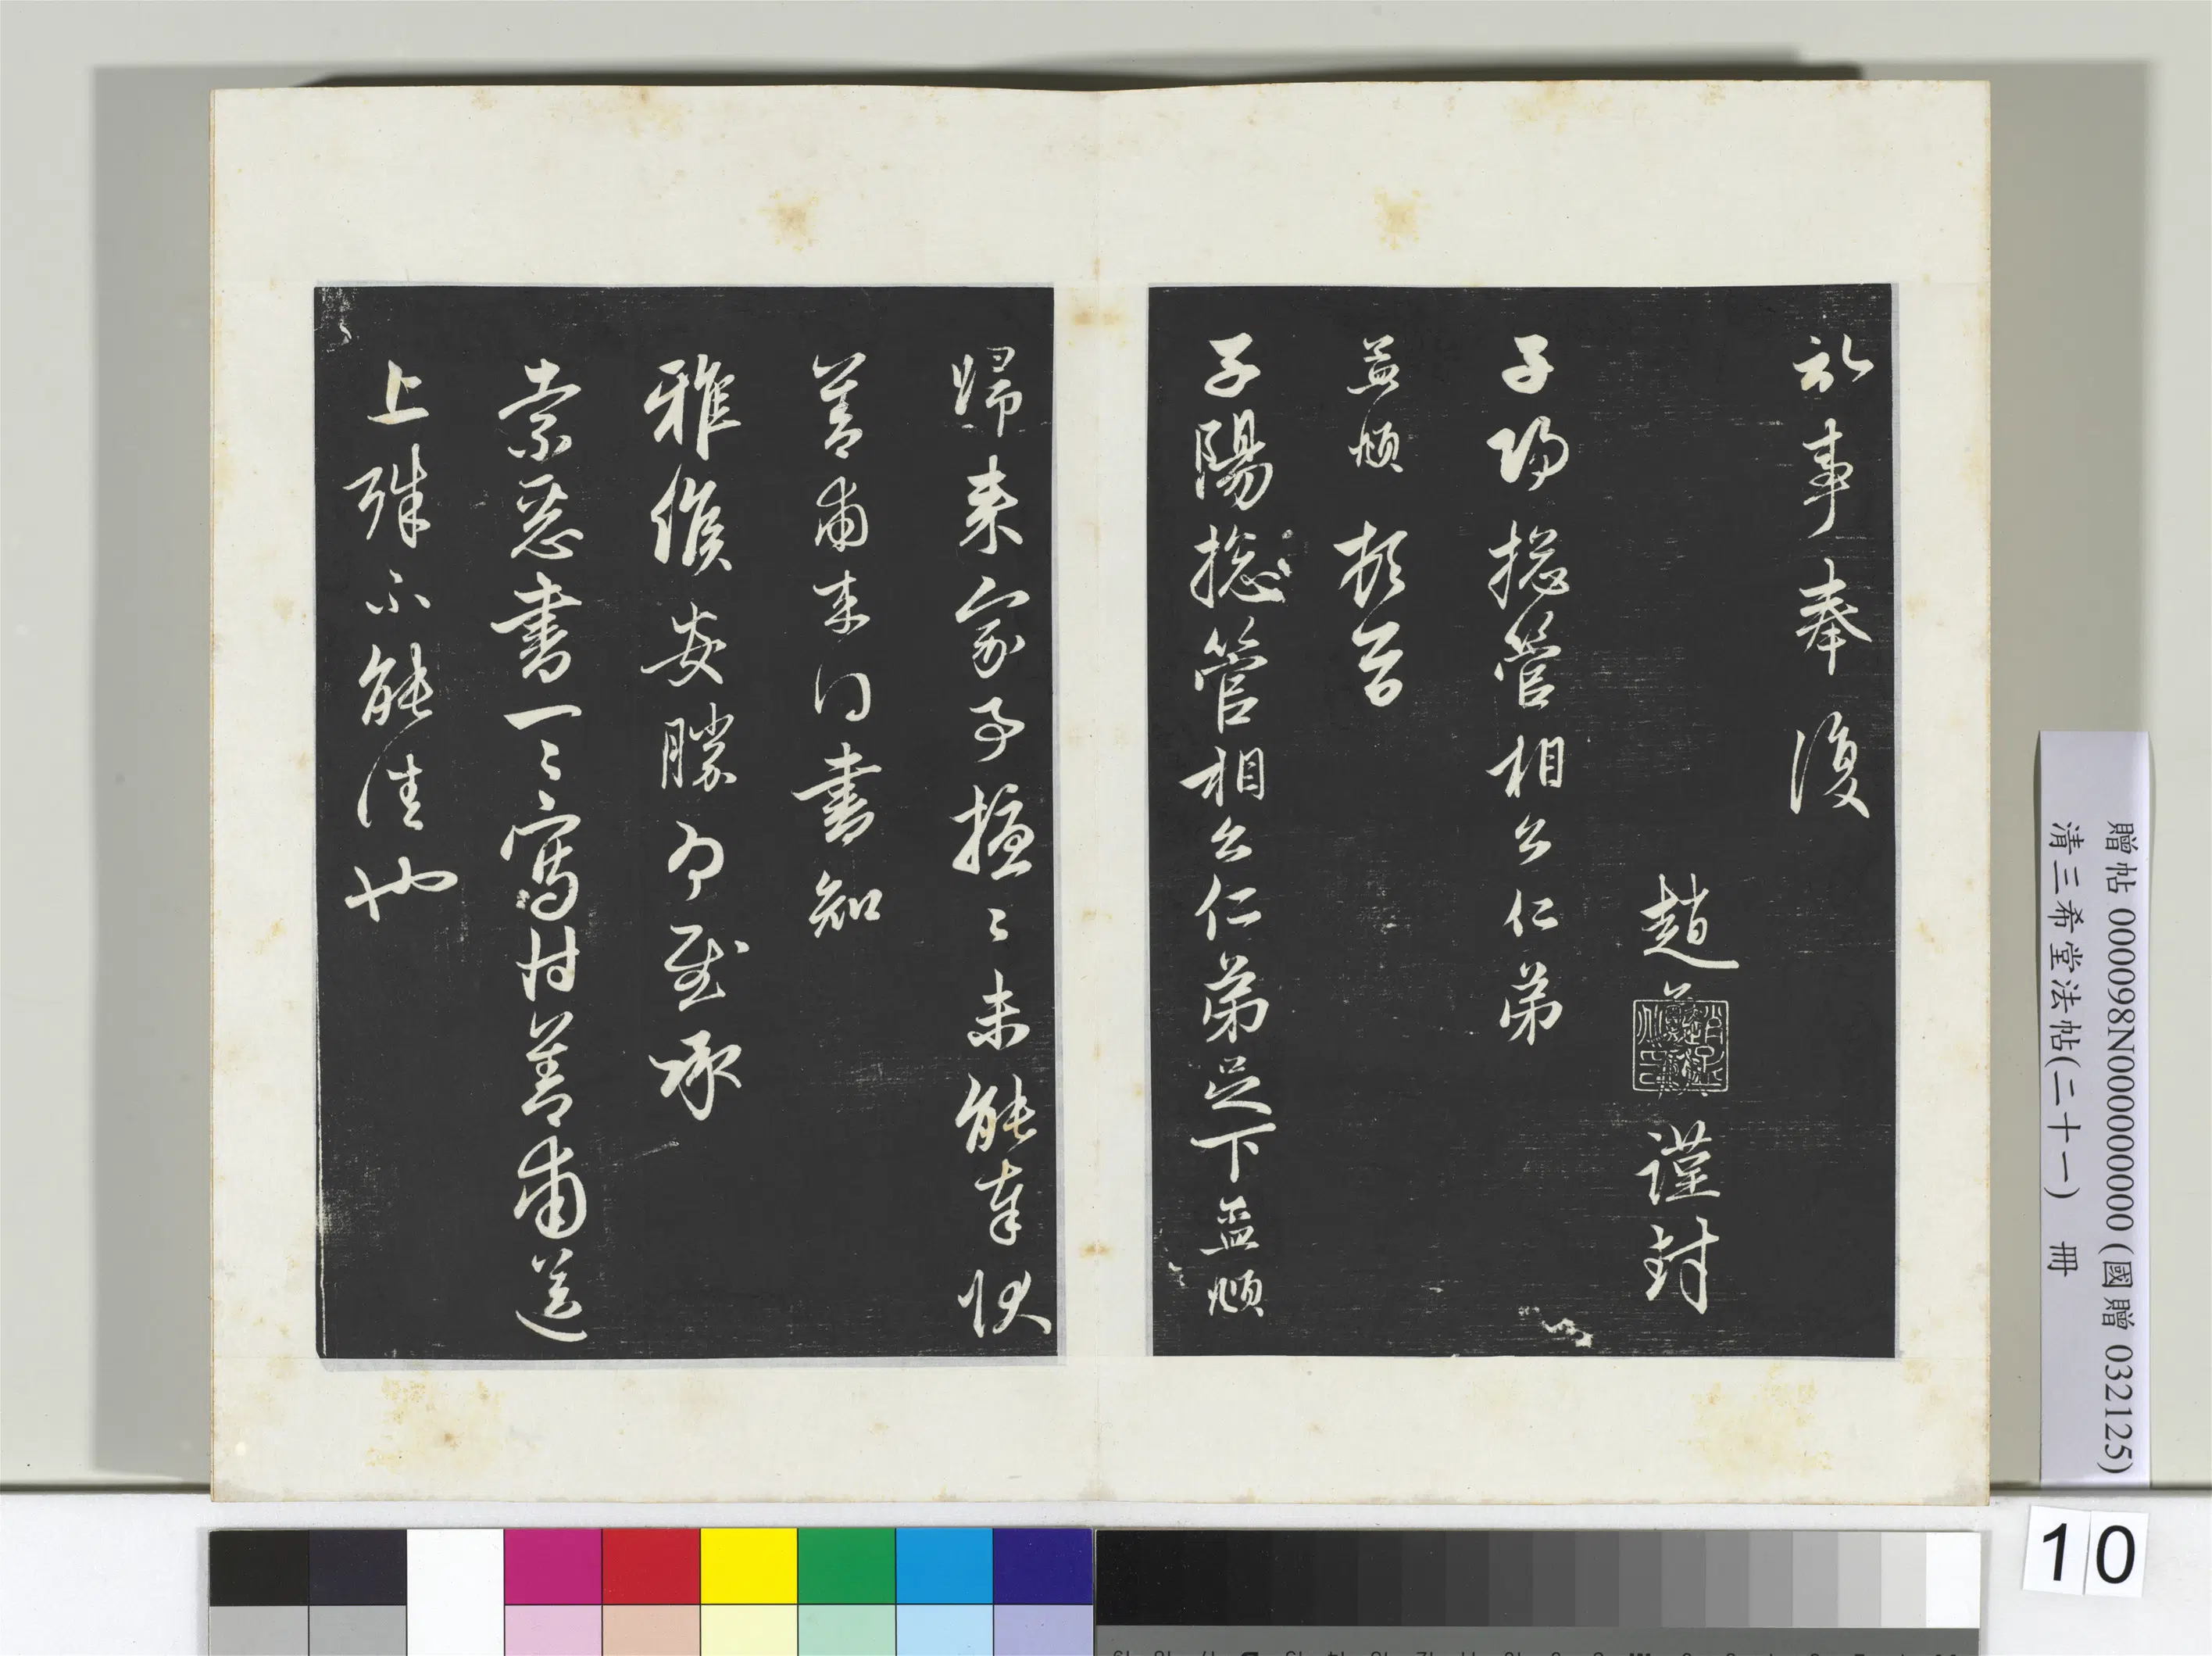 記事奉復
趙
謹封
子陽揔管相公仁弟
孟頫 頓首
子陽揔管相公仁弟足下孟頫
歸來家事擾〻未能奉狀
善甫來得書知
雅候安勝為慰承
索惡書一〻寫付善甫送
上殊不能佳也
贈帖 000098N000000000 (國贈 032125)
清三希堂法帖(二十一) 冊
10